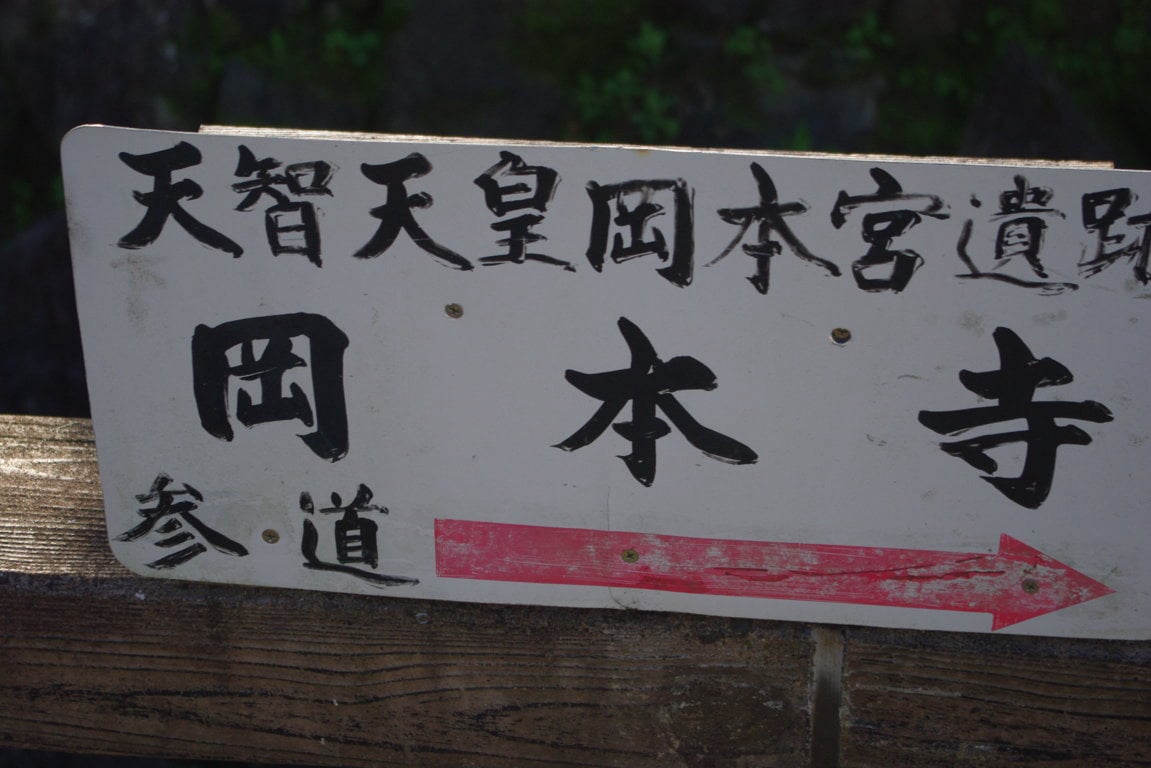 天智天皇岡本宮遺跡
岡本寺
参道